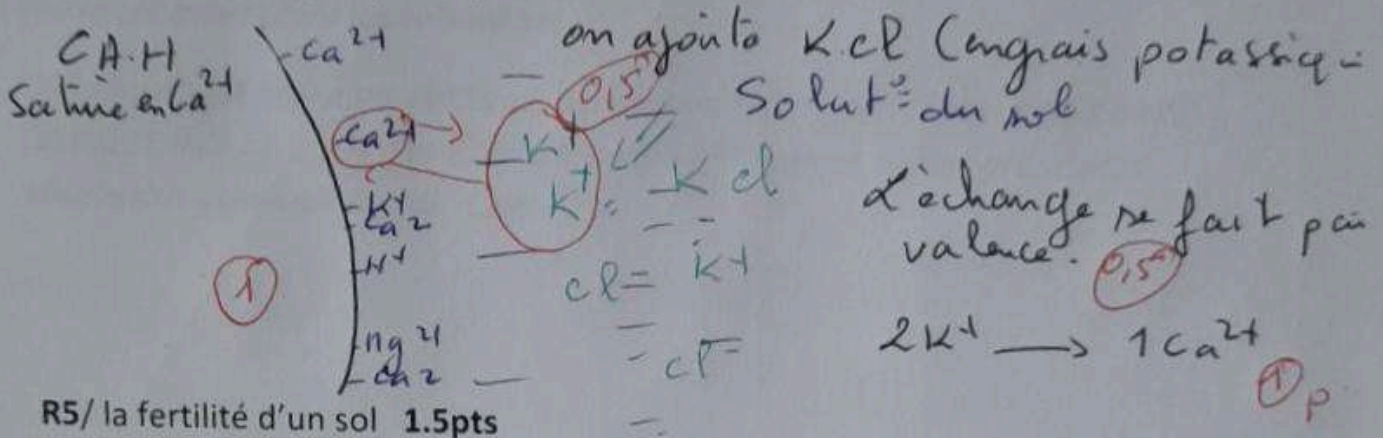 CA.H
Saturé en Ca²⁺
Ca²⁺
Ca²⁺
K⁺
Ca²
H⁺
Mg²⁺
Ca²
1
on ajoute KCl (engrais potassiq
0,5
Solut° du sol
K⁺
K⁺
KCl
Cl⁻ K⁺
Cl⁻
L'échange se fait par
valence. 0,5
2K⁺ → 1Ca²⁺
1 p
R5/ la fertilité d'un sol 1.5pts